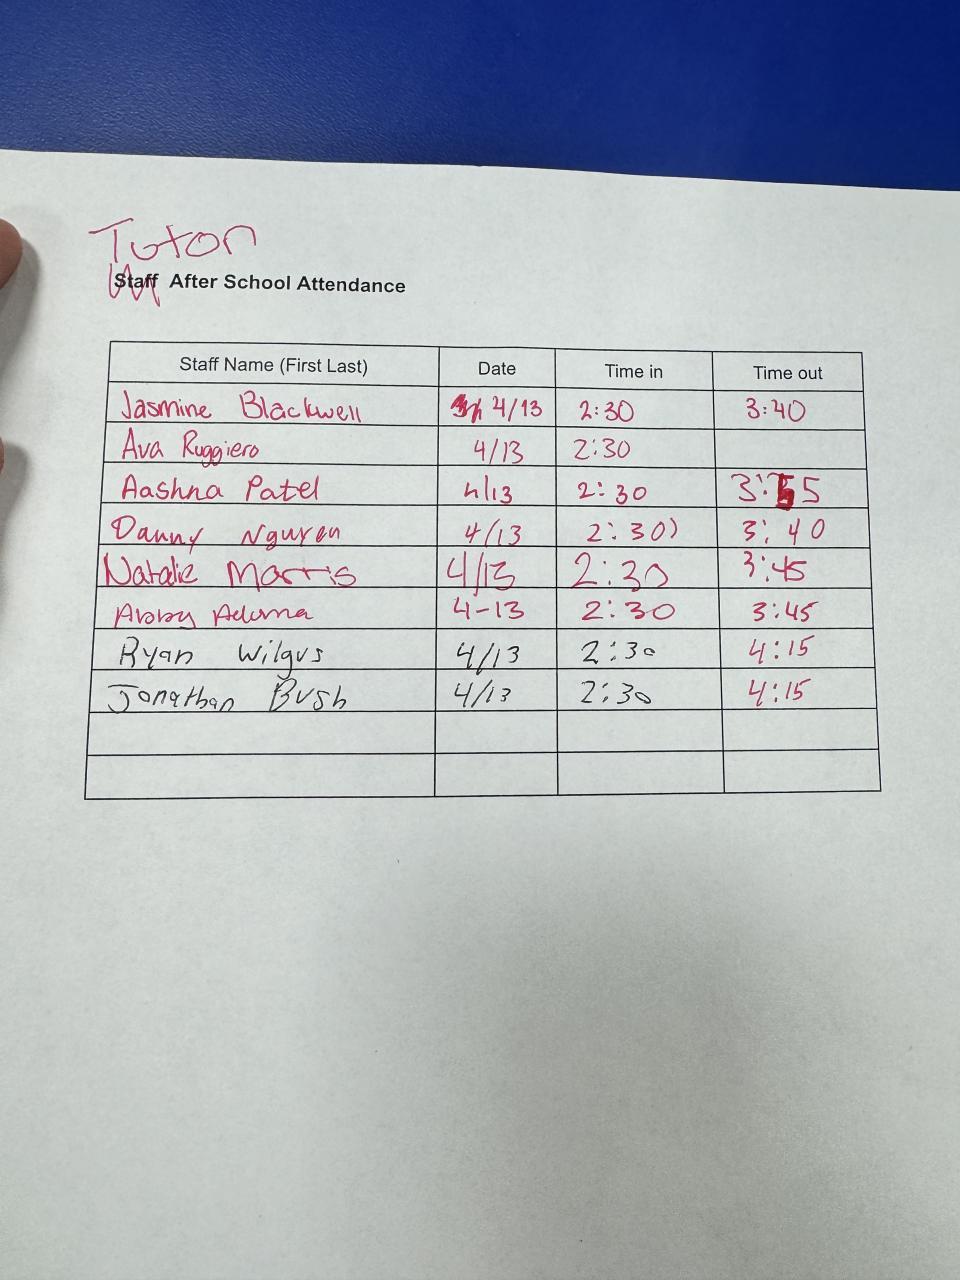 Tutor
Staff After School Attendance
Staff Name (First Last) Date Time in Time out
Jasmine Blackwell 4/13 2:30 3:40
Ava Ruggiero 4/13 2:30
Aashna Patel 4/13 2:30
Danny Nguyen 4/13 2:30 3:40
Natalie Morris 4/13 2:30 3:45
Abby 4-13 2:30 3:45
Ryan Wilgus 4/13 2:30 4:15
Jonathan Bush 4/13 2:30 4:15